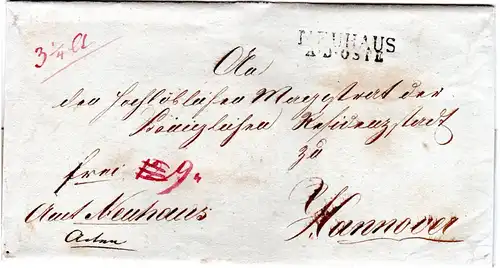 3 3/4 Lt
NEUHAUS
A. D. OSTE
An
den Hochlöblichen Magistrat der
Königlichen Residenzstadt
zu
frei 9
Hannover
Amt Neuhaus
Acten